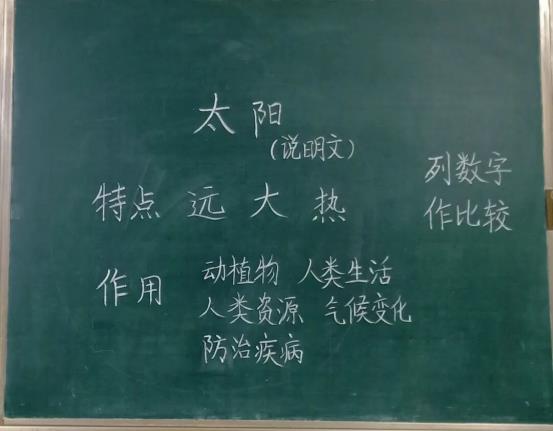 太阳
(说明文)
列数字
特点 远 大 热
作比较
作用
动植物 人类生活
人类资源 气候变化
防治疾病